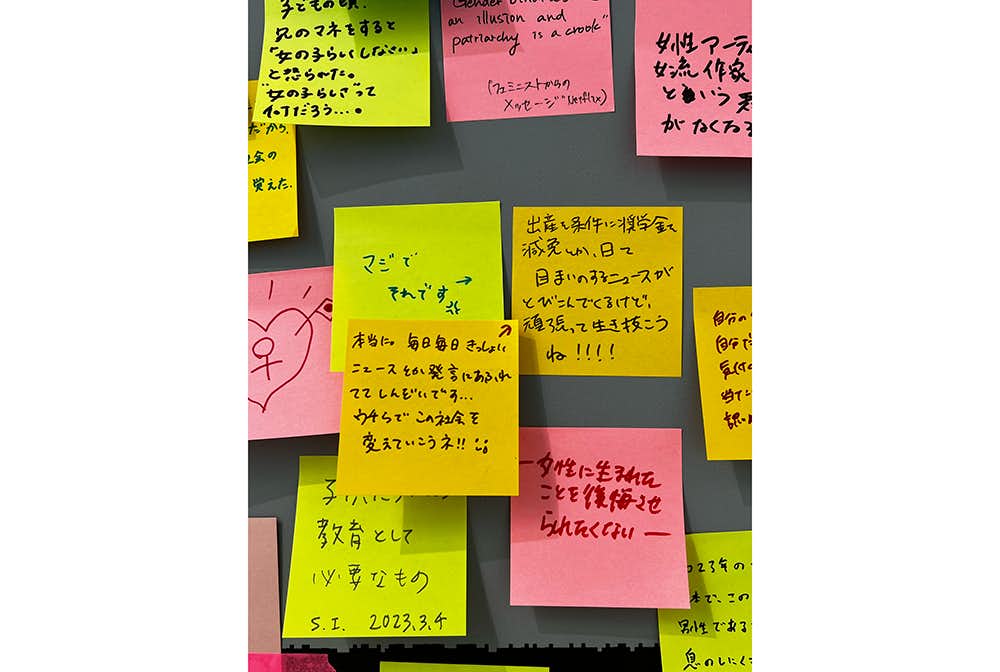 子どもの頃、
兄のマネをすると
「女の子らしくしなさい」
と怒られた。
"女の子らしさ"って
何だろう…。
an illusion and
patriarchy is a crook"
(フェミニストからの
メッセージ Netflix)
女性アーティ
女流作家
という
がなくなる
だから、
社会の
覚えた。
マジで
それです →
出産を条件に奨学金を
減免とか、日々
目まいのするニュースが
とびこんでくるけど、
頑張って生き抜こう
ね!!!!
本当に。毎日毎日きっしょい
ニュースとか発言にあふれ
ててしんどいです…
ウチらでこの社会を
変えていこうネ!!
自分の
自分で
当た
女性に生まれた
ことを後悔させ
られたくない ―
教育として
必要なもの
S.I. 2023.3.4
2023年の
本で、この
男性である
息のしにくさ